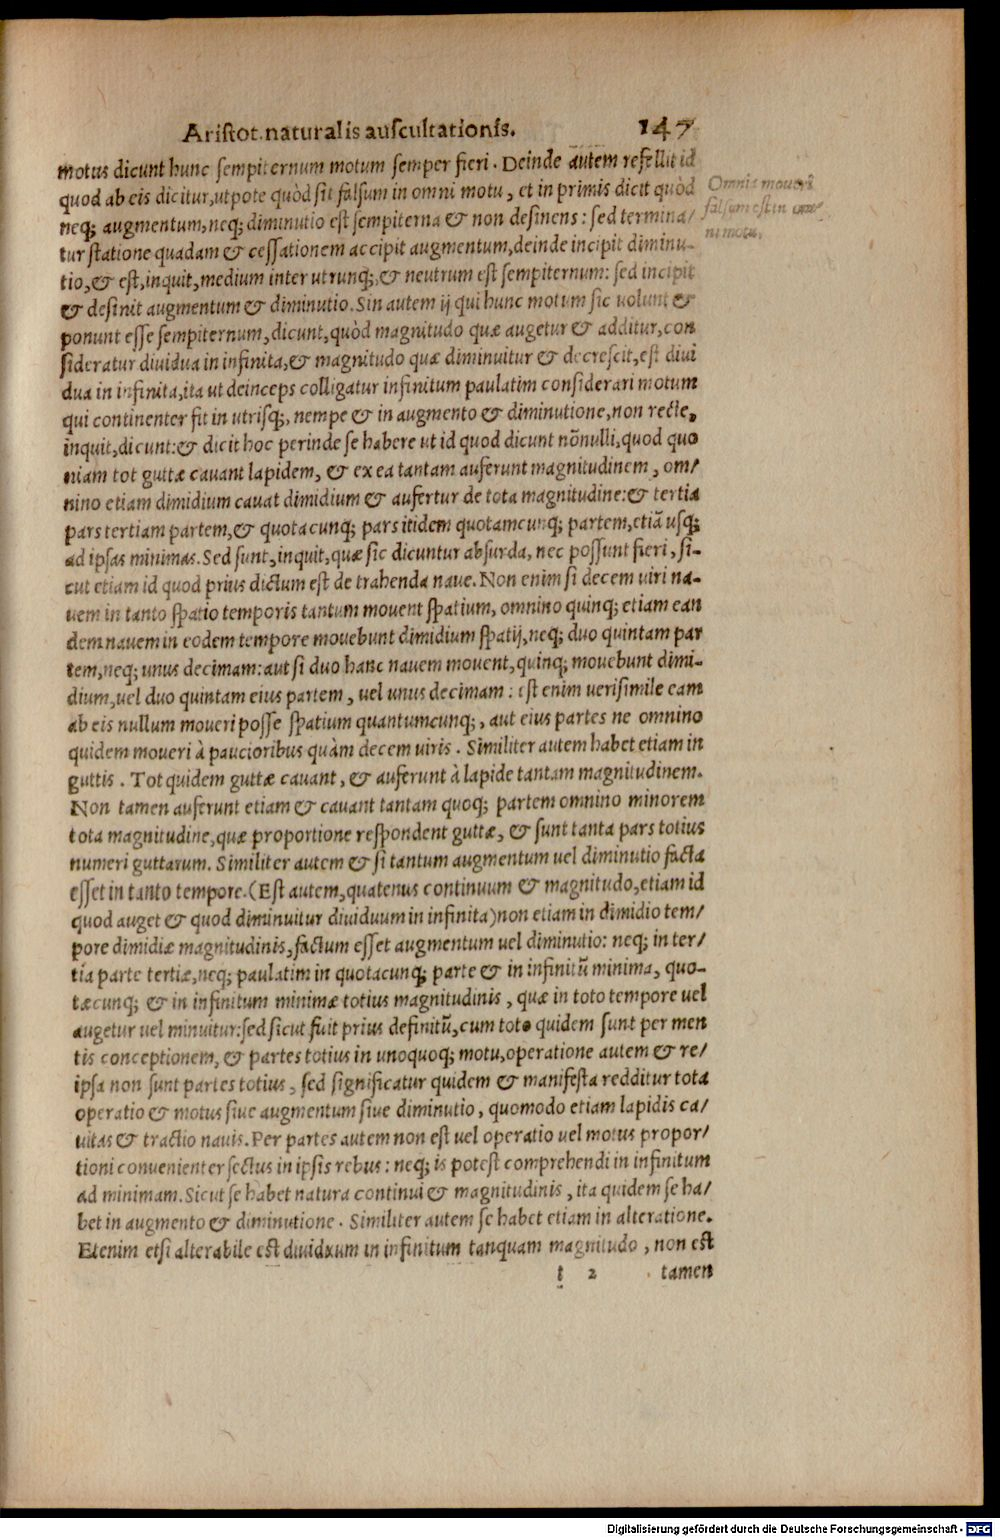 Aristot. naturalis auscultationis. 147
motus dicunt hunc sempiternum motum semper fieri. Deinde autem refellit id
quod ab eis dicitur, utpote quòd sit falsum in omni motu, et in primis dicit quòd
neq; augmentum, neq; diminutio est sempiterna & non desinens: sed termina/
tur statione quadam & cessationem accipit augmentum, deinde incipit diminu-
tio, & est, inquit, medium inter utrunq;, & neutrum est sempiternum: sed incipit
& desinit augmentum & diminutio. Sin autem ij qui hunc motum sic uolunt &
ponunt esse sempiternum, dicunt, quòd magnitudo quæ augetur & additur, con
sideratur diuidua in infinita, & magnitudo quæ diminuitur & decrescit, est diui
dua in infinita, ita ut deinceps colligatur infinitum paulatim considerari motum
qui continenter fit in utrisq;, nempe & in augmento & diminutione, non recte,
inquit, dicunt: & dicit hoc perinde se habere ut id quod dicunt nõnulli, quod quo
niam tot guttæ cauant lapidem, & ex ea tantam auferunt magnitudinem, om/
nino etiam dimidium cauat dimidium & aufertur de tota magnitudine: & tertia
pars tertiam partem, & quotacunq; pars itidem quotamcunq; partem, etiã usq;
ad ipsas minimas. Sed sunt, inquit, quæ sic dicuntur absurda, nec possunt fieri, si-
cut etiam id quod prius dictum est de trahenda naue. Non enim si decem uiri na-
uem in tanto spatio temporis tantum mouent spatium, omnino quinq; etiam ean
dem nauem in eodem tempore mouebunt dimidium spatij, neq; duo quintam par
tem, neq; unus decimam: aut si duo hanc nauem mouent, quinq; mouebunt dimi-
dium, uel duo quintam eius partem, uel unus decimam: est enim uerisimile eam
ab eis nullum moueri posse spatium quantumcunq;, aut eius partes ne omnino
quidem moueri à paucioribus quàm decem uiris. Similiter autem habet etiam in
guttis. Tot quidem guttæ cauant, & auferunt à lapide tantam magnitudinem.
Non tamen auferunt etiam & cauant tantam quoq; partem omnino minorem
tota magnitudine, quæ proportione respondent guttæ, & sunt tanta pars totius
numeri guttarum. Similiter autem & si tantum augmentum uel diminutio facta
esset in tanto tempore. (Est autem, quatenus continuum & magnitudo, etiam id
quod auget & quod diminuitur diuiduum in infinita) non etiam in dimidio tem/
pore dimidiæ magnitudinis, factum esset augmentum uel diminutio: neq; in ter/
tia parte tertiæ, neq; paulatim in quotacunq; parte & in infinitũ minima, quo-
tæcunq; & in infinitum minimæ totius magnitudinis, quæ in toto tempore uel
augetur uel minuitur: sed sicut fuit prius definitũ, cum toto quidem sunt per men
tis conceptionem, & partes totius in unoquoq; motu, operatione autem & re/
ipsa non sunt partes totius, sed significatur quidem & manifesta redditur tota
operatio & motus siue augmentum siue diminutio, quomodo etiam lapidis ca/
uitas & tractio nauis. Per partes autem non est uel operatio uel motus propor/
tioni conuenienter sectus in ipsis rebus: neq; is potest comprehendi in infinitum
ad minimam. Sicut se habet natura continui & magnitudinis, ita quidem se ha/
bet in augmento & diminutione. Similiter autem se habet etiam in alteratione.
Etenim etsi alterabile est diuiduum in infinitum tanquam magnitudo, non est
t 2 tamen
Omnia moueri
falsum est in om/
ni motu.
Digitalisierung gefördert durch die Deutsche Forschungsgemeinschaft - DFG